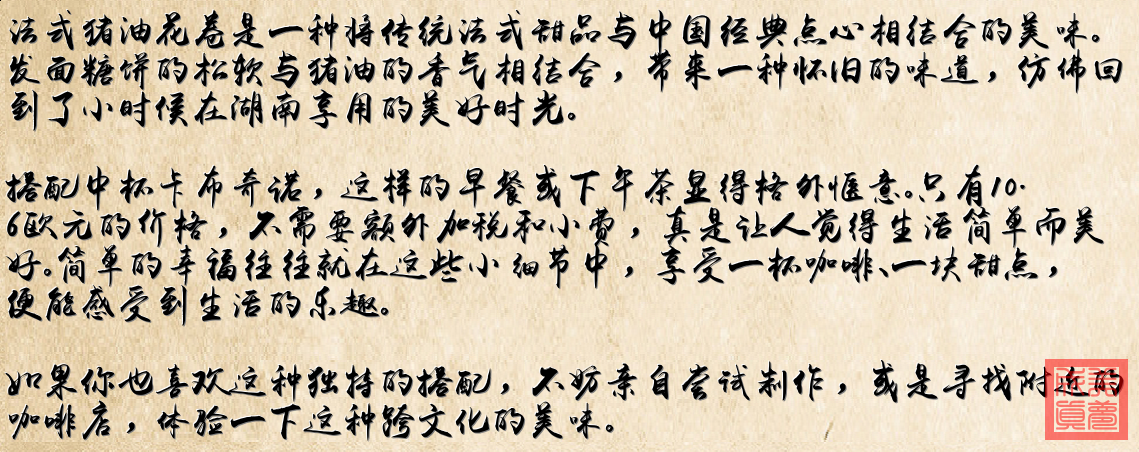 法式猪油花卷是一种将传统法式甜品与中国经典点心相结合的美味。
发面糖饼的松软与猪油的香气相结合，带来一种怀旧的味道，仿佛回
到了小时候在湖南享用的美好时光。
搭配中杯卡布奇诺，这样的早餐或下午茶显得格外惬意。只有10.
6欧元的价格，不需要额外加税和小费，真是让人觉得生活简单而美
好。简单的幸福往往就在这些小细节中，享受一杯咖啡、一块甜点，
便能感受到生活的乐趣。
如果你也喜欢这种独特的搭配，不妨亲自尝试制作，或是寻找附近的
咖啡店，体验一下这种跨文化的美味。